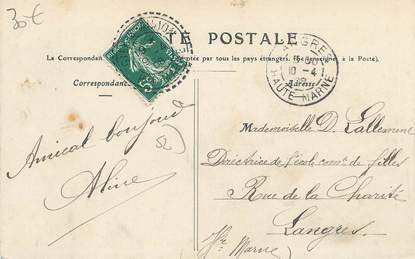 30€
CARTE POSTALE
La Correspondance ... acceptée par tous les pays étrangers. (Se renseigner à la Poste).
Correspondance
Adresse
LANGRES
10 -4
HAUTE MARNE
5c
Amical bonjour
Aline
52
Mademoiselle D. Lallement
Directrice de l'école com. de filles
Rue de la Charité
Langres
(Hte Marne)